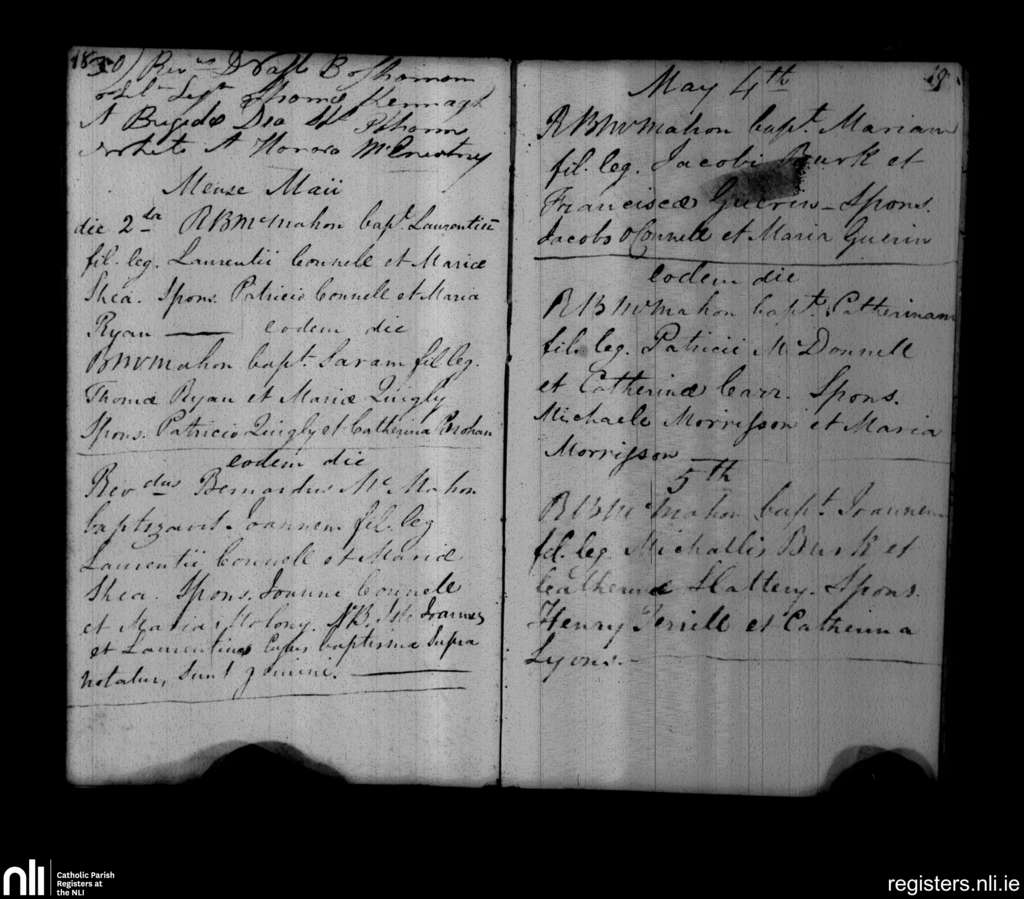 1830
Thomæ
et Brigidæ Thoma
White et Honora McEnestry
Mense Maii
die 2da RBMcMahon bapt. Laurentiū
fil. leg. Laurentii Connell et Mariæ
Shea. Spons. Patricio Connell et Maria
Ryan — eodem die
BMcMahon bapt. Saram fil leg.
Thomæ Ryan et Mariæ Quigly
Spons. Patricio Quigly et Catherina
eodem die
Revdus Bernardus Mc Mahon
baptizavit Joannem fil. leg
Laurentii Connell et Mariæ
Shea. Spons. Joanne Connell
et Maria Molony. NB. Iste Joannes
et Laurentius Cujus baptisma Supra
notatur, Sunt gemini.
19
May 4th
RBMcMahon bapt. Mariam
fil. leg. Jacobi Burk et
Franciscæ Guerin – Spons.
Jacobo O Connell et Maria Guerin
eodem die
RBMcMahon bapt. Catherinam
fil. leg. Patricii McDonnell
et Catherinæ Carr. Spons.
Michaele Morrisson et Maria
Morrisson
5th
RBMcMahon bapt. Joannem
fil. leg. Michallis Burk et
Catherinæ Slattery. Spons.
Henry Terrill et Catherina
Lyons.
nli
Catholic Parish
Registers at
the NLI
registers.nli.ie